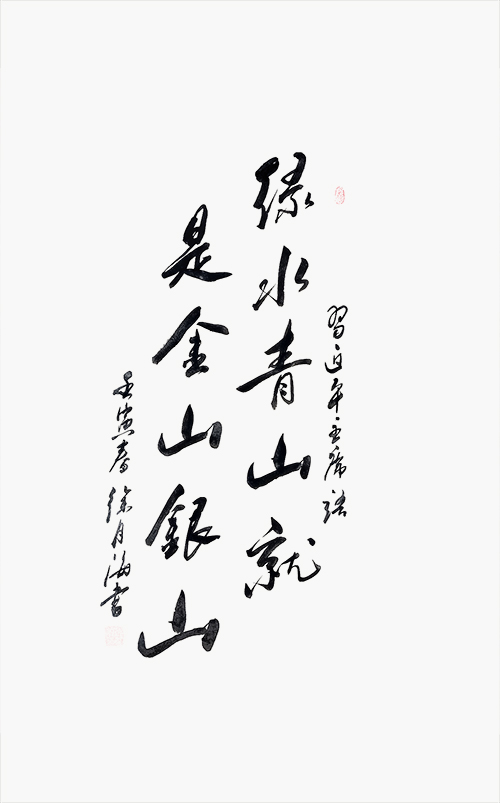 習近平主席語
绿水青山就
是金山銀山
壬寅春徐月海書